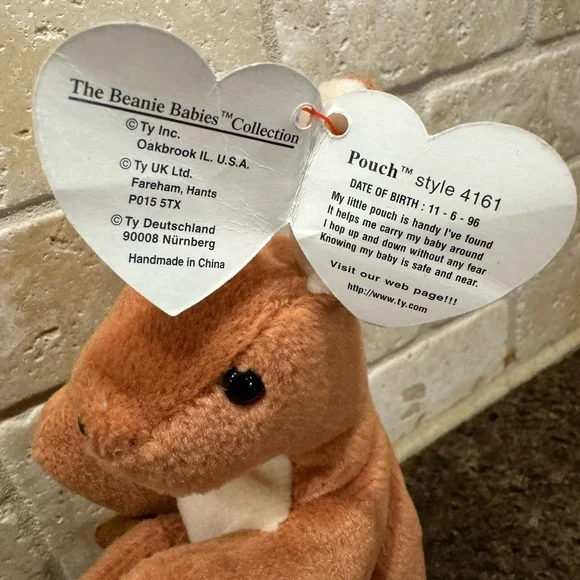 The Beanie Babies™Collection
©Ty Inc.
Oakbrook IL. U.S.A.
©Ty UK Ltd.
Fareham, Hants
P015 5TX
©Ty Deutschland
90008 Nürnberg
Handmade in China
Pouch™ style 4161
DATE OF BIRTH : 11 - 6 - 96
My little pouch is handy I've found
It helps me carry my baby around
I hop up and down without any fear
Knowing my baby is safe and near.
Visit our web page!!!
http://www.ty.com